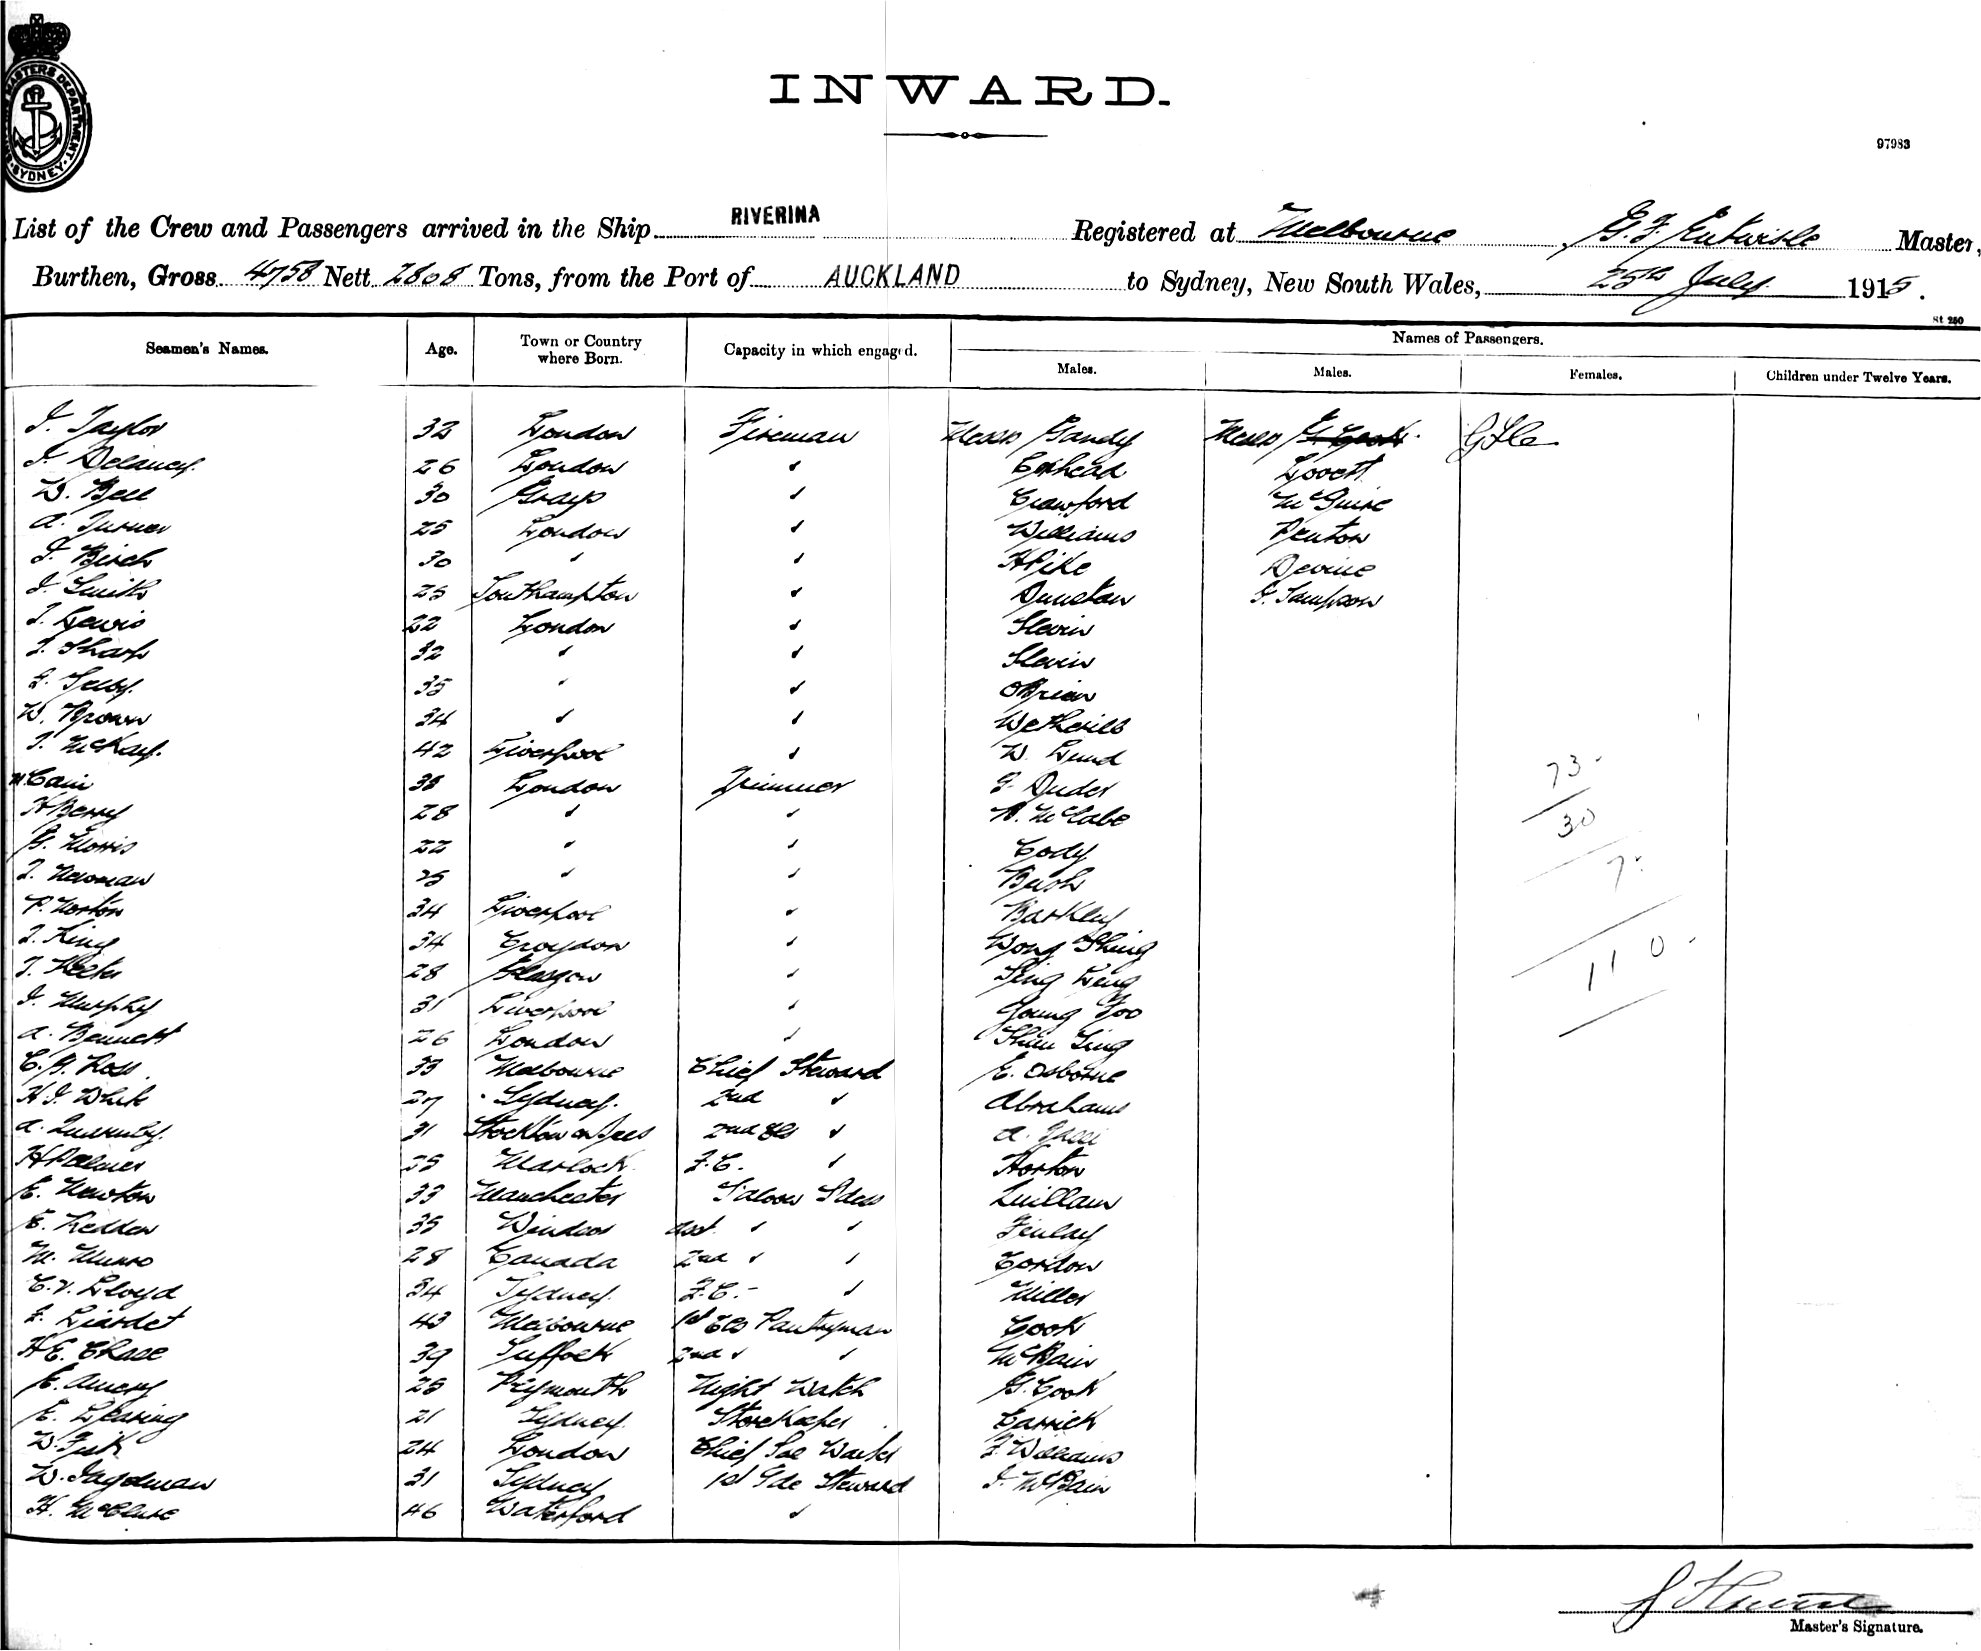 SHIPPING MASTERS DEPARTMENT. SYDNEY.
INWARD.
97983
List of the Crew and Passengers arrived in the Ship RIVERINA Registered at Melbourne G. F. Entwisle Master,
Burthen, Gross 4758 Nett 2808 Tons, from the Port of AUCKLAND to Sydney, New South Wales, 25th July 1915.
St 250
Seamen's Names. Age. Town or Country where Born. Capacity in which engaged. Names of Passengers.
Males. Males. Females. Children under Twelve Years.
J. Taylor 32 London Fireman Messrs Gandy Messrs G. Cook
J. Delaney 26 London " Lovett
W. Bell 30 Grays " Crawford McGuire
A. Turner 25 London " Williams Penton
J. Birch 30 " " H Pike Devine
J. Smith 25 Southampton " Dunstan G. Sampson
J. Lewis 22 London " Slevin
J. Sharp 32 " " Slevin
35 " " O'Brien
W. Brown 34 " " Wetherill
J. McKay 42 Liverpool " W. Lund
McCain 38 London Trimmer Duder
H Berry 28 " " McCabe
G. Morris 22 " " Cody
J. Newman 25 " " Bush
P. Norton 34 Liverpool " Barkley
J. King 34 Croydon " Wong Shing
28 Glasgow "
J. Murphy 31 Liverpool " Young Yoo
A. Bennett 26 London "
C. A. Ross 33 Melbourne Chief Steward E. Osborne
H. J. White 27 Sydney 2nd " Abrahams
A. Quarmby 31 Stockton on Tees 2nd "
H Palmer 25 F.C. " Horton
E. Newton 33 Manchester Saloon Quillam
35 Windsor Asst. " " Finlay
M. Munro 28 Canada 2nd " " Gordon
C. V. Lloyd 34 Sydney F.C. " Miller
Liardet 43 Melbourne 1st Cls Pantryman Cook
H E. Chase 39 Suffolk 2nd " " McBain
E. Amery 25 Plymouth Night Watch G. Cook
E. Dearing 21 Sydney Storekeeper Carrick
W. Fisk 24 London Chief Williams
W. 31 Sydney 1st Steward J. McBain
H. McClure 46 Waterford "
73
30
7
110
Master's Signature.